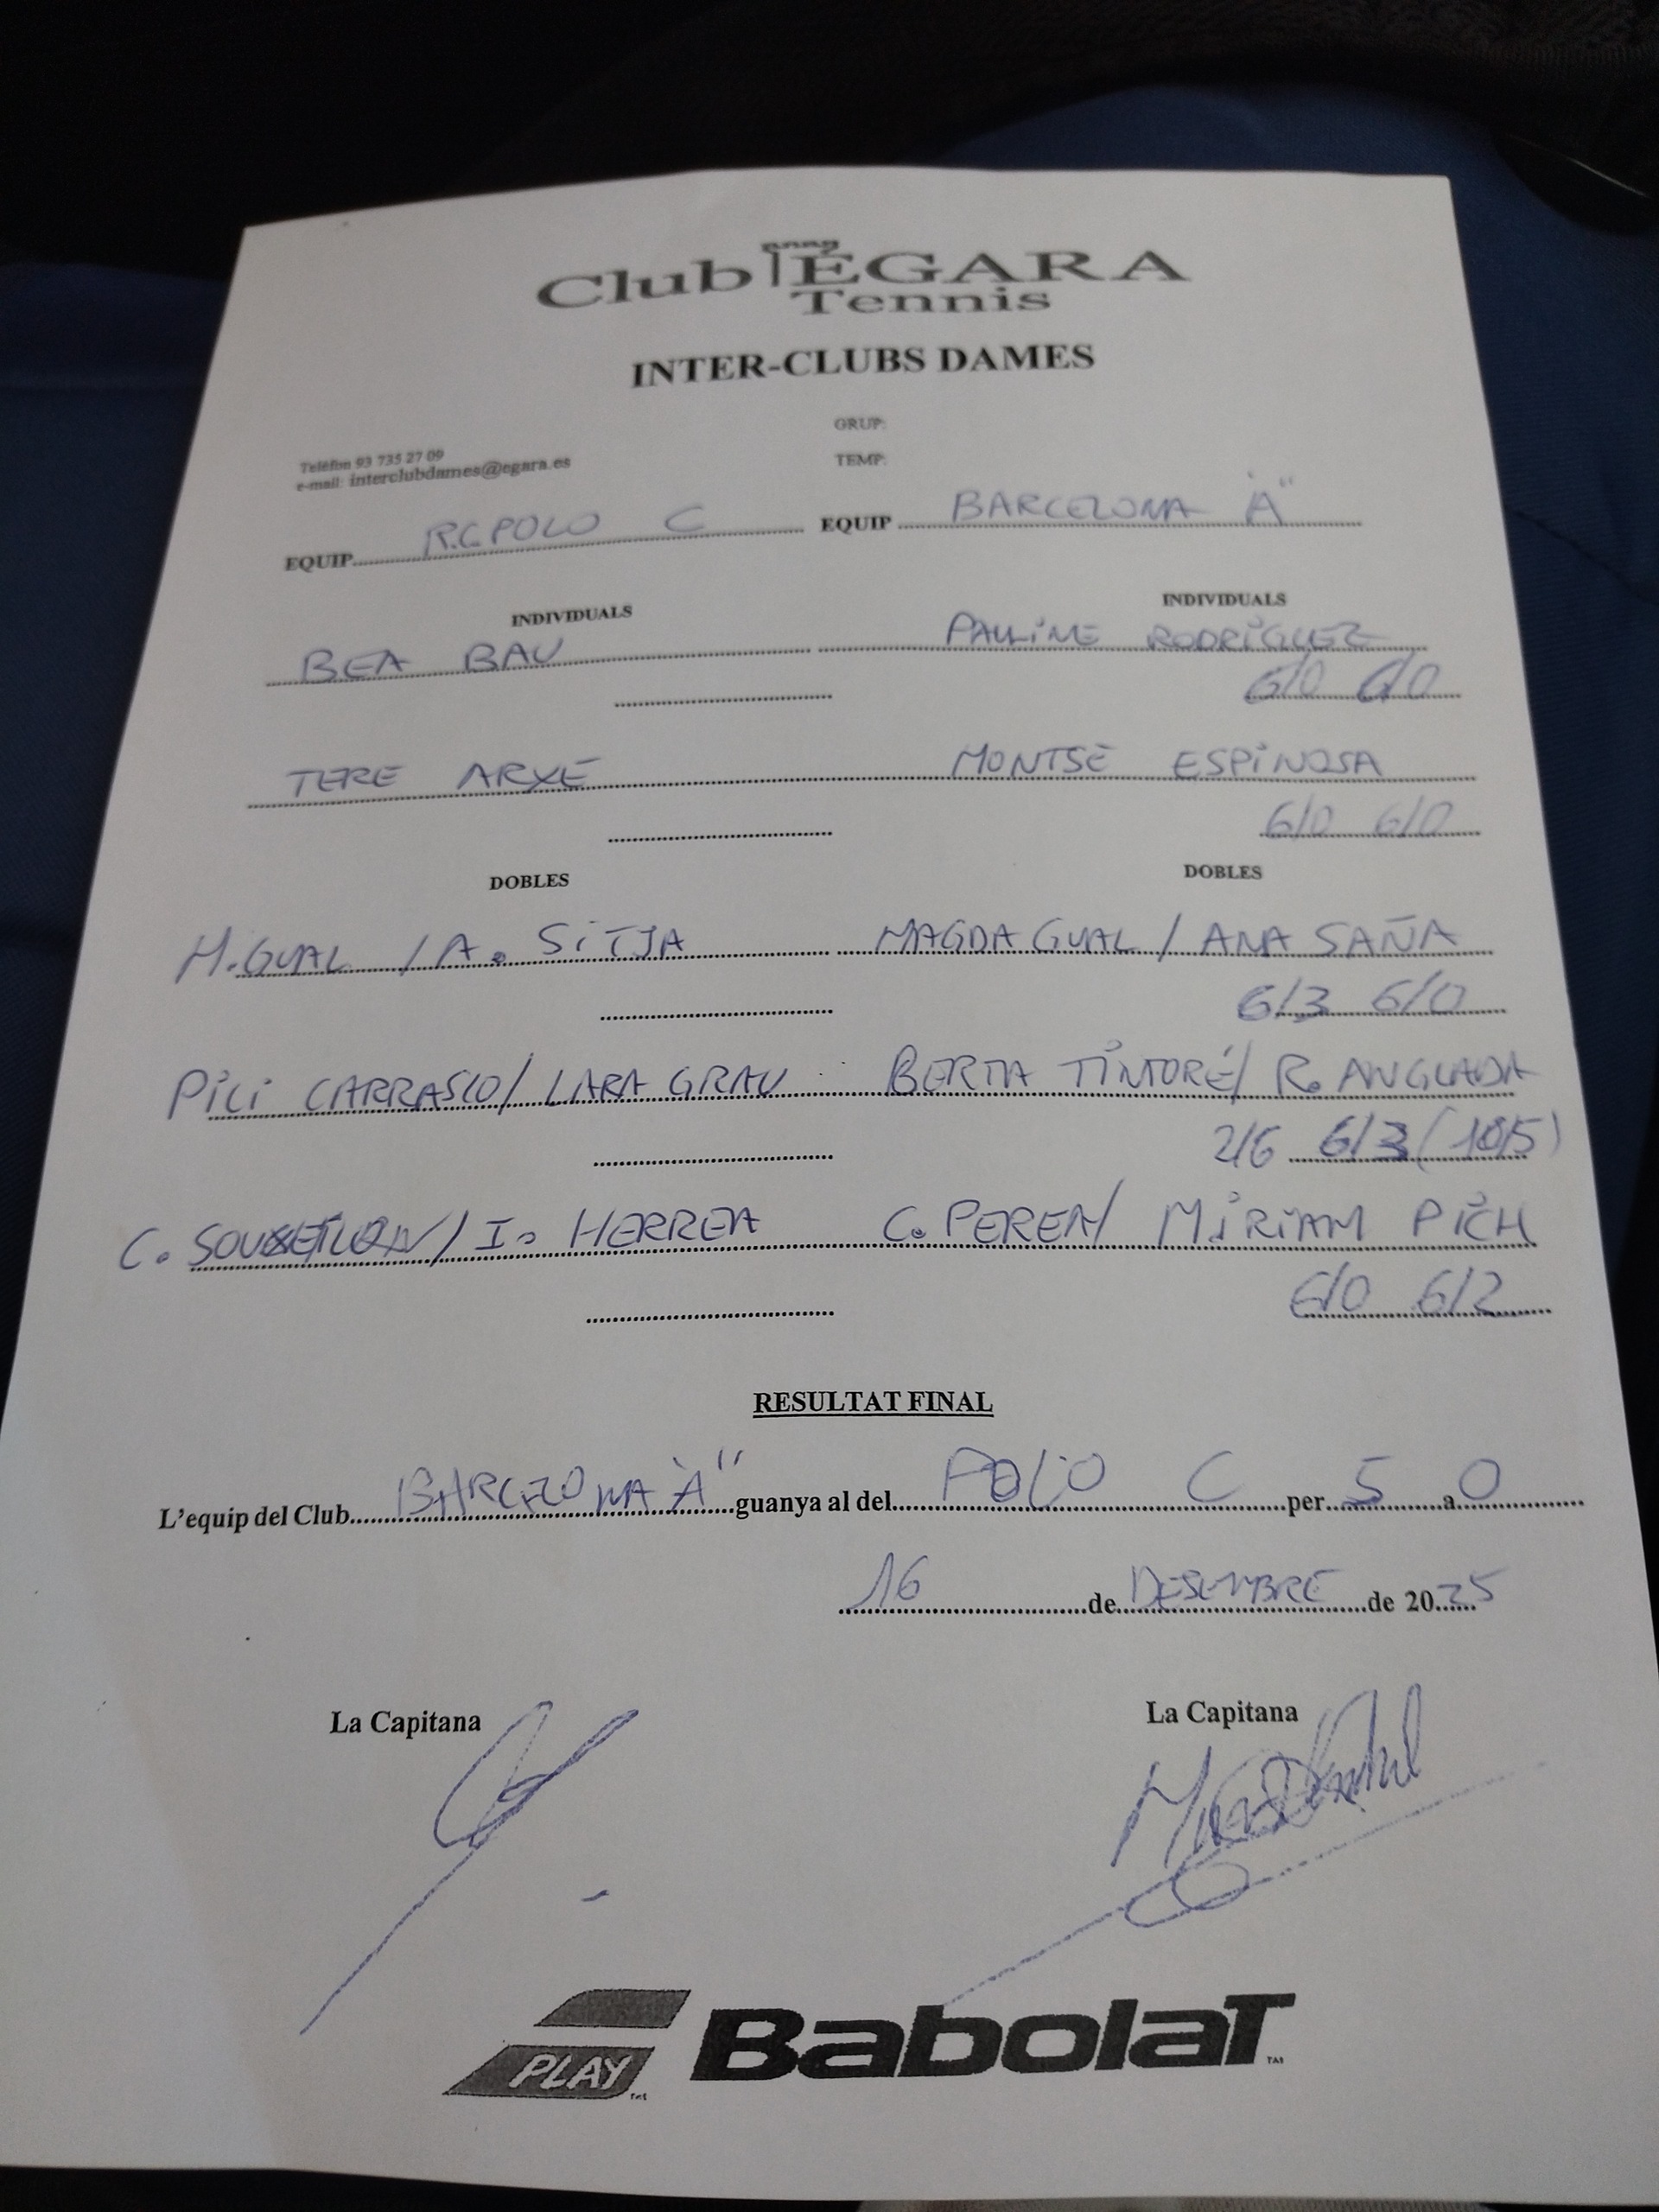 Club ÈGARA
Tennis
INTER-CLUBS DAMES
GRUP:
Telèfon 93 735 27 09
TEMP:
e-mail: interclubdames@egara.es
EQUIP R.C. POLO C EQUIP BARCELONA "A"
INDIVIDUALS INDIVIDUALS
BEA BAU PAULINE RODRÍGUEZ
6/0 6/0
TERE ARXE MONTSE ESPINOSA
6/0 6/0
DOBLES DOBLES
M. GUAL / A. SITJA MAGDA GUAL / ANA SAÑA
6/3 6/0
PILI CARRASCO / LARA GRAU BERTA TINTORÉ / R. ANGLADA
2/6 6/3 (10/5)
C. / I. HERRERA C. PEREA / MIRIAM PICH
6/0 6/2
RESULTAT FINAL
L'equip del Club BARCELONA "A" guanya al del POLO C per 5 a 0
16 de DESEMBRE de 2025
La Capitana La Capitana
PLAY Babolat